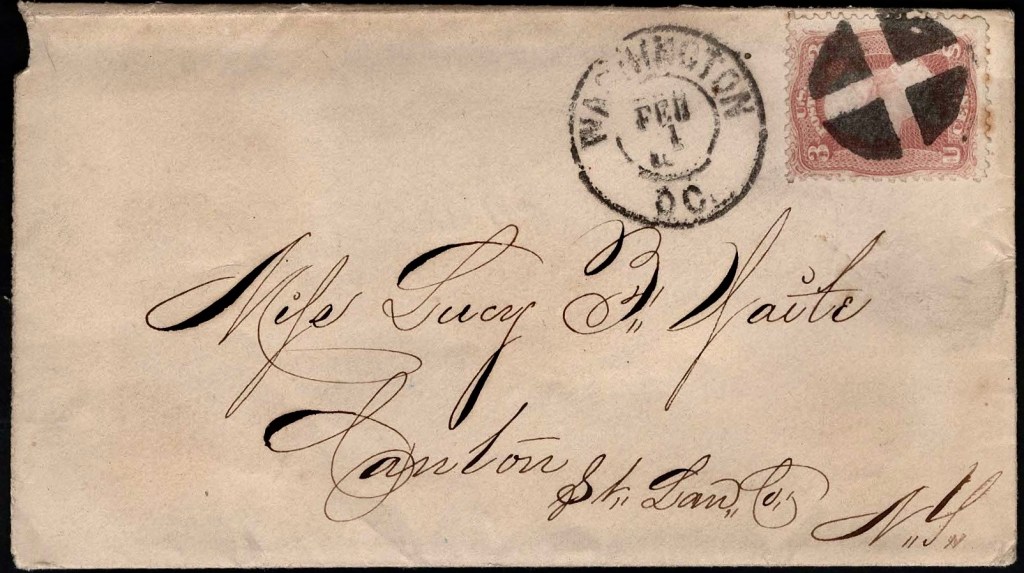 WASHINGTON
FEB
1
DC.
3 U
Miſs Lucy B. Waite
Canton
St. Law. Co.
N.Y.